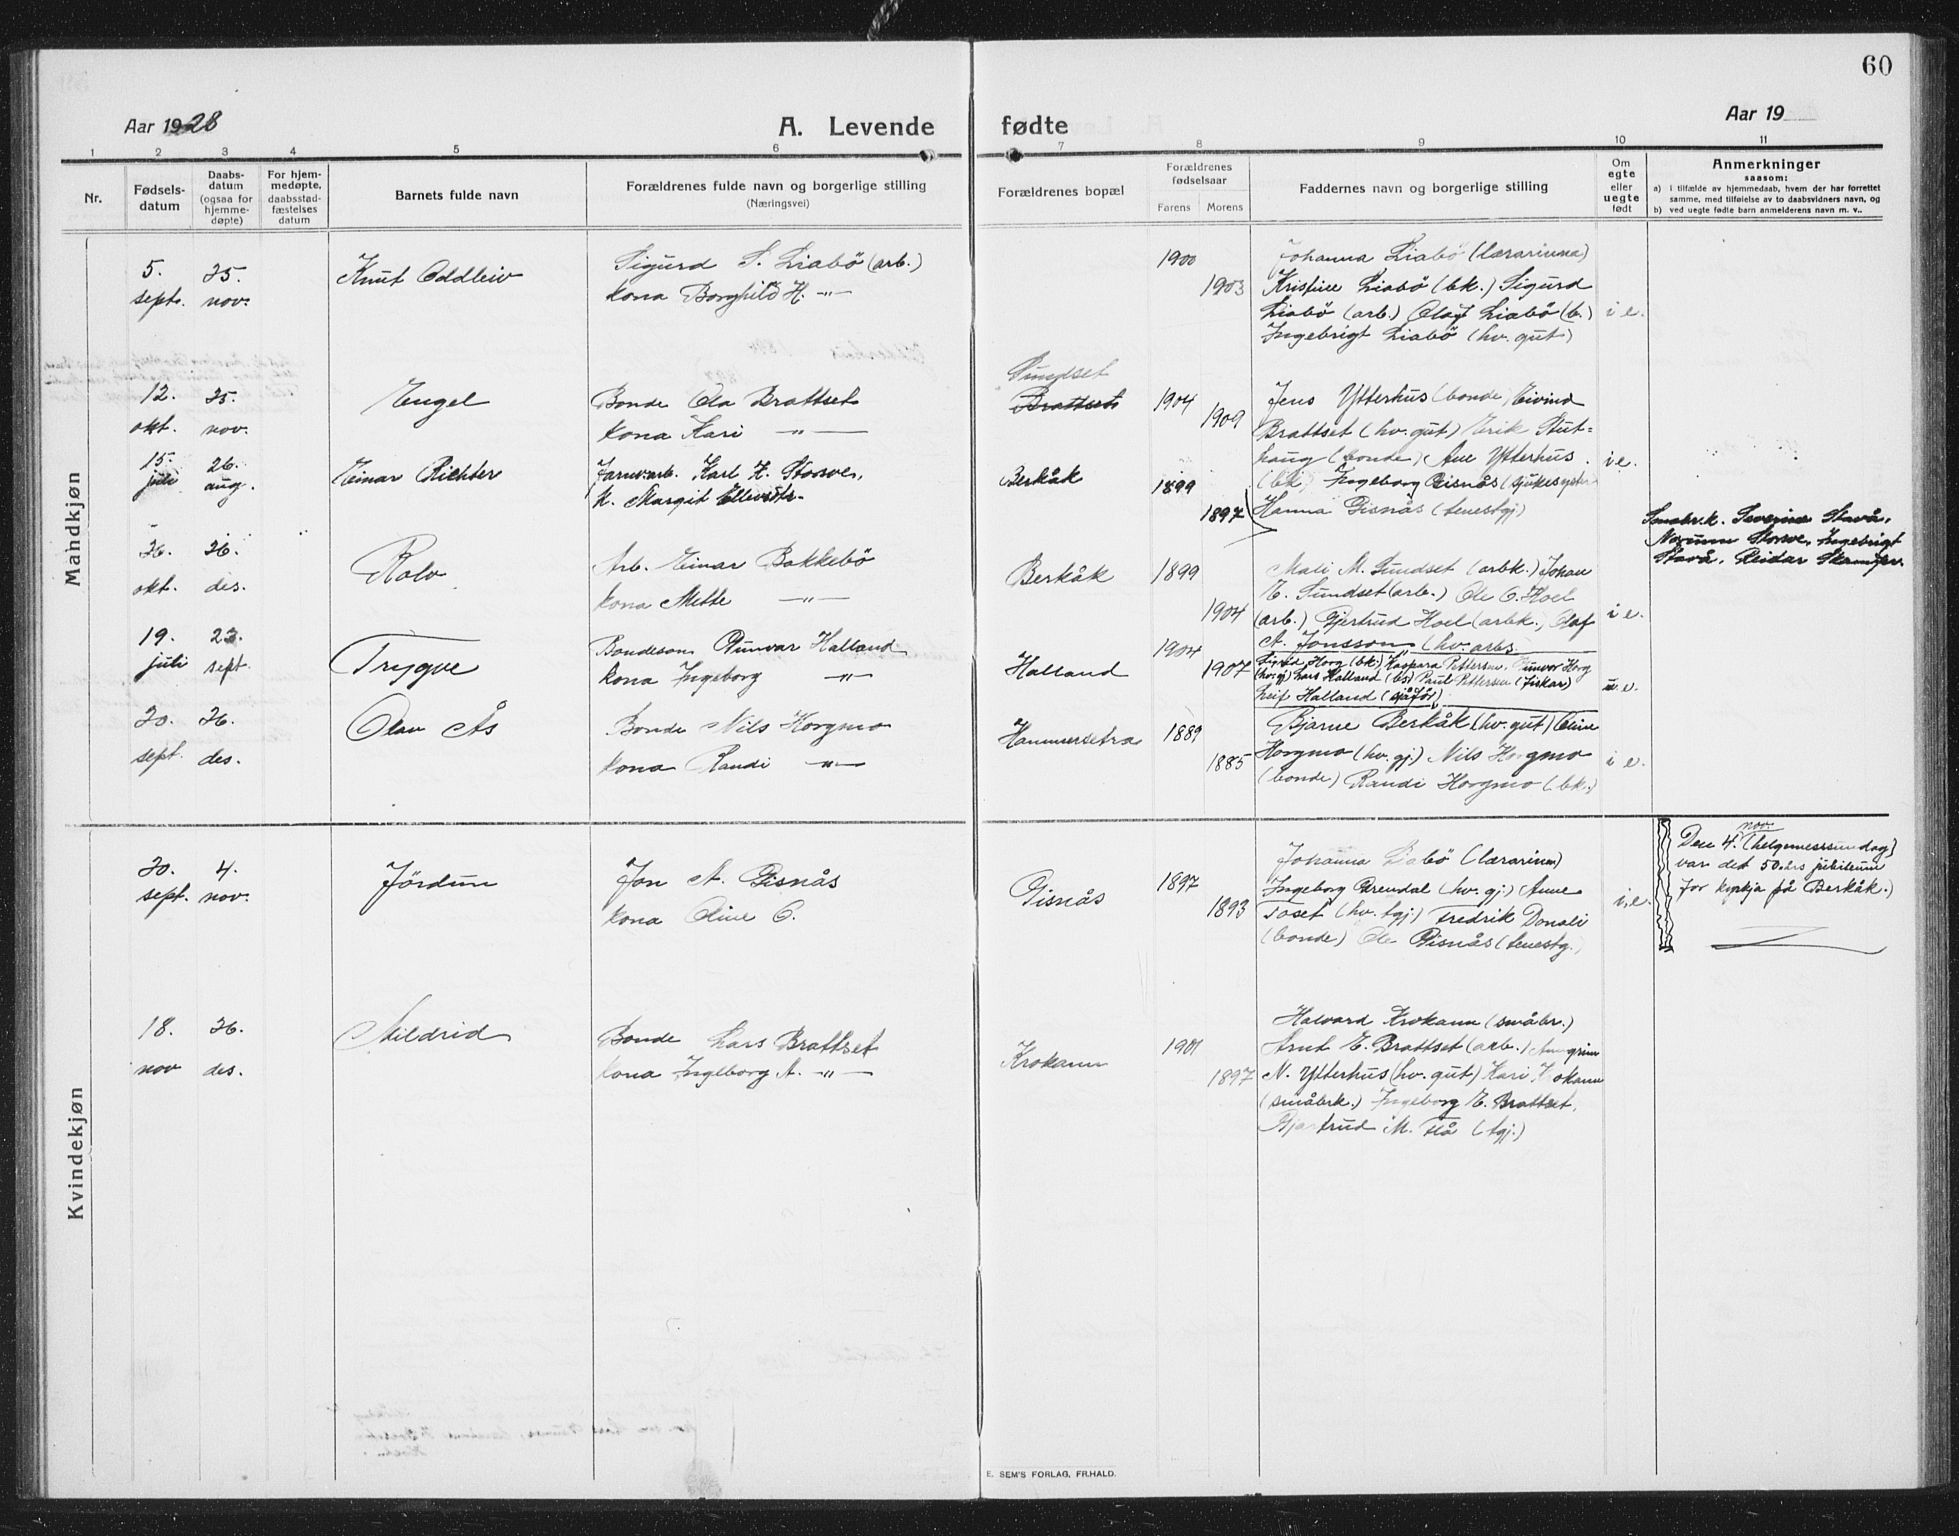 60
Aar 1928
A. Levende
fødte
Aar 19
1 2 3 4 5 6 7 8 9 10 11
Nr.
Fødsels-
datum
Daabs-
datum
(ogsaa for
hjemme-
døpte)
For hjem-
medøpte,
daabsstad-
fæstelses
datum
Barnets fulde navn
Forældrenes fulde navn og borgerlige stilling
(Næringsvei)
Forældrenes bopæl
Forældrenes
fødselsaar
Farens Morens
Faddernes navn og borgerlige stilling
Om
egte
eller
uegte
født
Anmerkninger
saasom:
a) i tilfælde av hjemmedaab, hvem der har forrettet
samme, med tilføielse av to daabsvidners navn, og
b) ved uegte fødte barn anmelderens navn m. v..
Mandkjøn
5. sept. 25. nov.
Knut Oddleiv
Sigurd S. Liabö (arb.)
kona Borghild H. -"-
1900
1903
Johanna Liabö (lærarinna)
Liabö (bk.) Sigurd
Liabö (arb.) Olaf Liabö (b.)
Ingebrigt Liabö (hv. gut)
i e.
12. okt. 25. nov.
Engel
Bonde Ola Brattset
kona Kari -"-
Sundset
Brattset
1904
1909
Jens Ytterhus (bonde) Eivind
Brattset (hv. gut) Erik Stut-
haug (bonde) Ane Ytterhus
(bk.) Ingeborg Gisnås (sjukesyster)
Hanna Gisnås (tenestgj)
i e.
15. juli 26. aug.
Einar Richter
Jarnvarb. Karl K. Storve,
k. Margit
Berkåk
1899
1897
Smabr.k. Stavå,
Storve, Ingebrigt
Stavå, Reidar
26. okt. 26. des.
Rolv
Arb. Einar Bakkebö
kona Mette -"-
Berkåk
1899
1904
Mali M. Sundset (arbk.) Johan
E. Sundset (arb.) Ole O. Hoel
(arb.) Gjertrud Hoel (arbk.) Olaf
A. Jonsson (hv. arb.
i e.
19. juli 23. sept.
Trygve
Bondeson Gunvar Halland
kona Ingeborg -"-
Halland
1904
1907
Sigrid Horg (bk.) Kaspara Pettersen, Gunvor Horg
(hv.gj) Lars Halland (bs) Paul Pettersen (fiskar)
Leif Halland (sjåför)
e.
20. sept. 26. des.
Olav Ås
Bonde Nils Horgmo
kona Randi -"-
Hammersetra
1889
1885
Bjarne Berkåk (hv. gut) Oline
Horgmo (hv. gj.) Nils Horgmo
(bonde) Randi Horgmo (bk.)
i e.
Kvindekjøn
20. sept. 4. nov.
Jördun
Jon A. Gisnås
kona Oline O.
Gisnås
1897
1893
Johanna Liabö (lærarinna)
Ingeborg Grendal (hv. gj.) Anne
Toset (hv. tgj.) Fredrik Donali
(bonde) Ole Gisnås (tenestg.)
i. e.
nov.
Den 4. (helgemessundag)
var det 50 års jubileum
for kyrkja på Berkåk.)
18. nov 26. des.
Mildrid
Bonde Lars Brattset
kona Ingeborg A. -"-
Krokann
1901
1897
Halvard Krokann (småbr.)
Arnt E. Brattset (arb.) Arngrim
N. Ytterhus (hv. gut) Kari Krokann
(småbrk.) Ingeborg E. Brattset,
Gjertrud M. Flå (tgj.)
E. SEM'S FORLAG, FR.HALD.